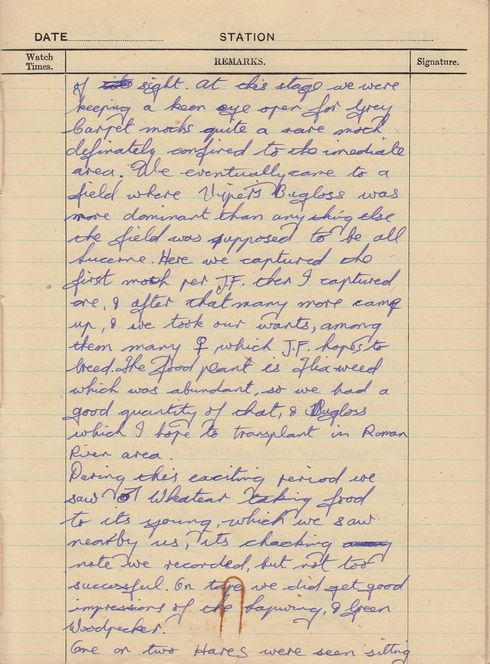 DATE STATION
Watch Times. REMARKS. Signature.
of sight. At this stage we were
keeping a keen eye open for Grey
Carpet moths quite a rare moth
definately confired to the imediate
area. We eventually came to a
field where Viper's Bugloss was
more dominant than anything else
the field was supposed to be all
lucerne. Here we captured the
first moth per J.F. then I captured
one, & after that many more came
up, & we took our wants, among
them many ♀, which J.F. hopes to
breed. The food plant is Flixweed
which was abundant, so we had a
good quantity of that, & Bugloss
which I hope to transplant in Roman
River area.
During this exciting period we
saw Wheatear taking food
to its young, which we saw
nearby us, its chacking
note we recorded, but not too
successful. On tape we did get good
impressions of the lapwing, & Green
Woodpecker.
One or two Hares were seen sitting